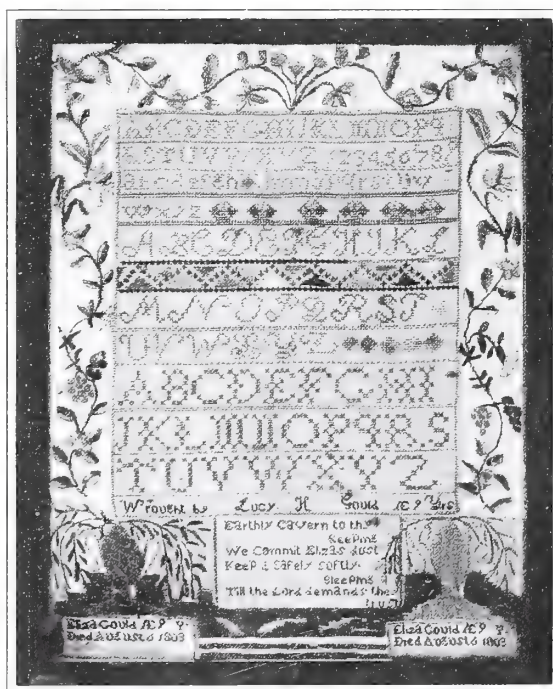 A B C D E F G H I K L M N O P Q
R S T U V W X Y Z 1 2 3 4 5 6 7 8
w x y z
A B C D E F G H I K L
M N O P Q R S T
U V W X Y Z
A B C D E F G H I
J K L M N O P Q R S
T U V W X Y Z
Wrought by Lucy H Gould Æ 9 Yrs
Earthly Cavern to thy
Keeping
We Commit Elizas dust
Keep it safely softly
Sleeping
Till the Lord demands
Eliza Gould Æ 9
Died August 6 1803
Eliza Gould Æ 9
Died August 6 1803